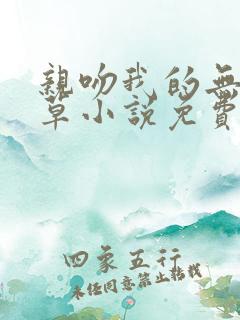 亲吻我的无
草小说免费
四象五行
未经同意禁止转载